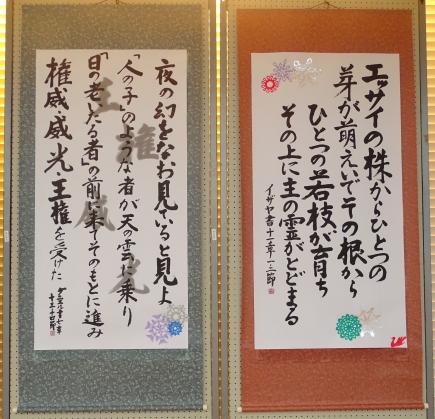 エッサイの株からひとつの
芽が萌えいでその根から
ひとつの若枝が育ち
その上に主の霊がとどまる
イザヤ書十一章一・二節
夜の幻をなお見ていると見よ
「人の子」のような者が天の雲に乗り
「日の老いたる者」の前に来てそのもとに進み
権威、威光、王権を受けた
ダニエル書七章
十三・十四節
王権
威光